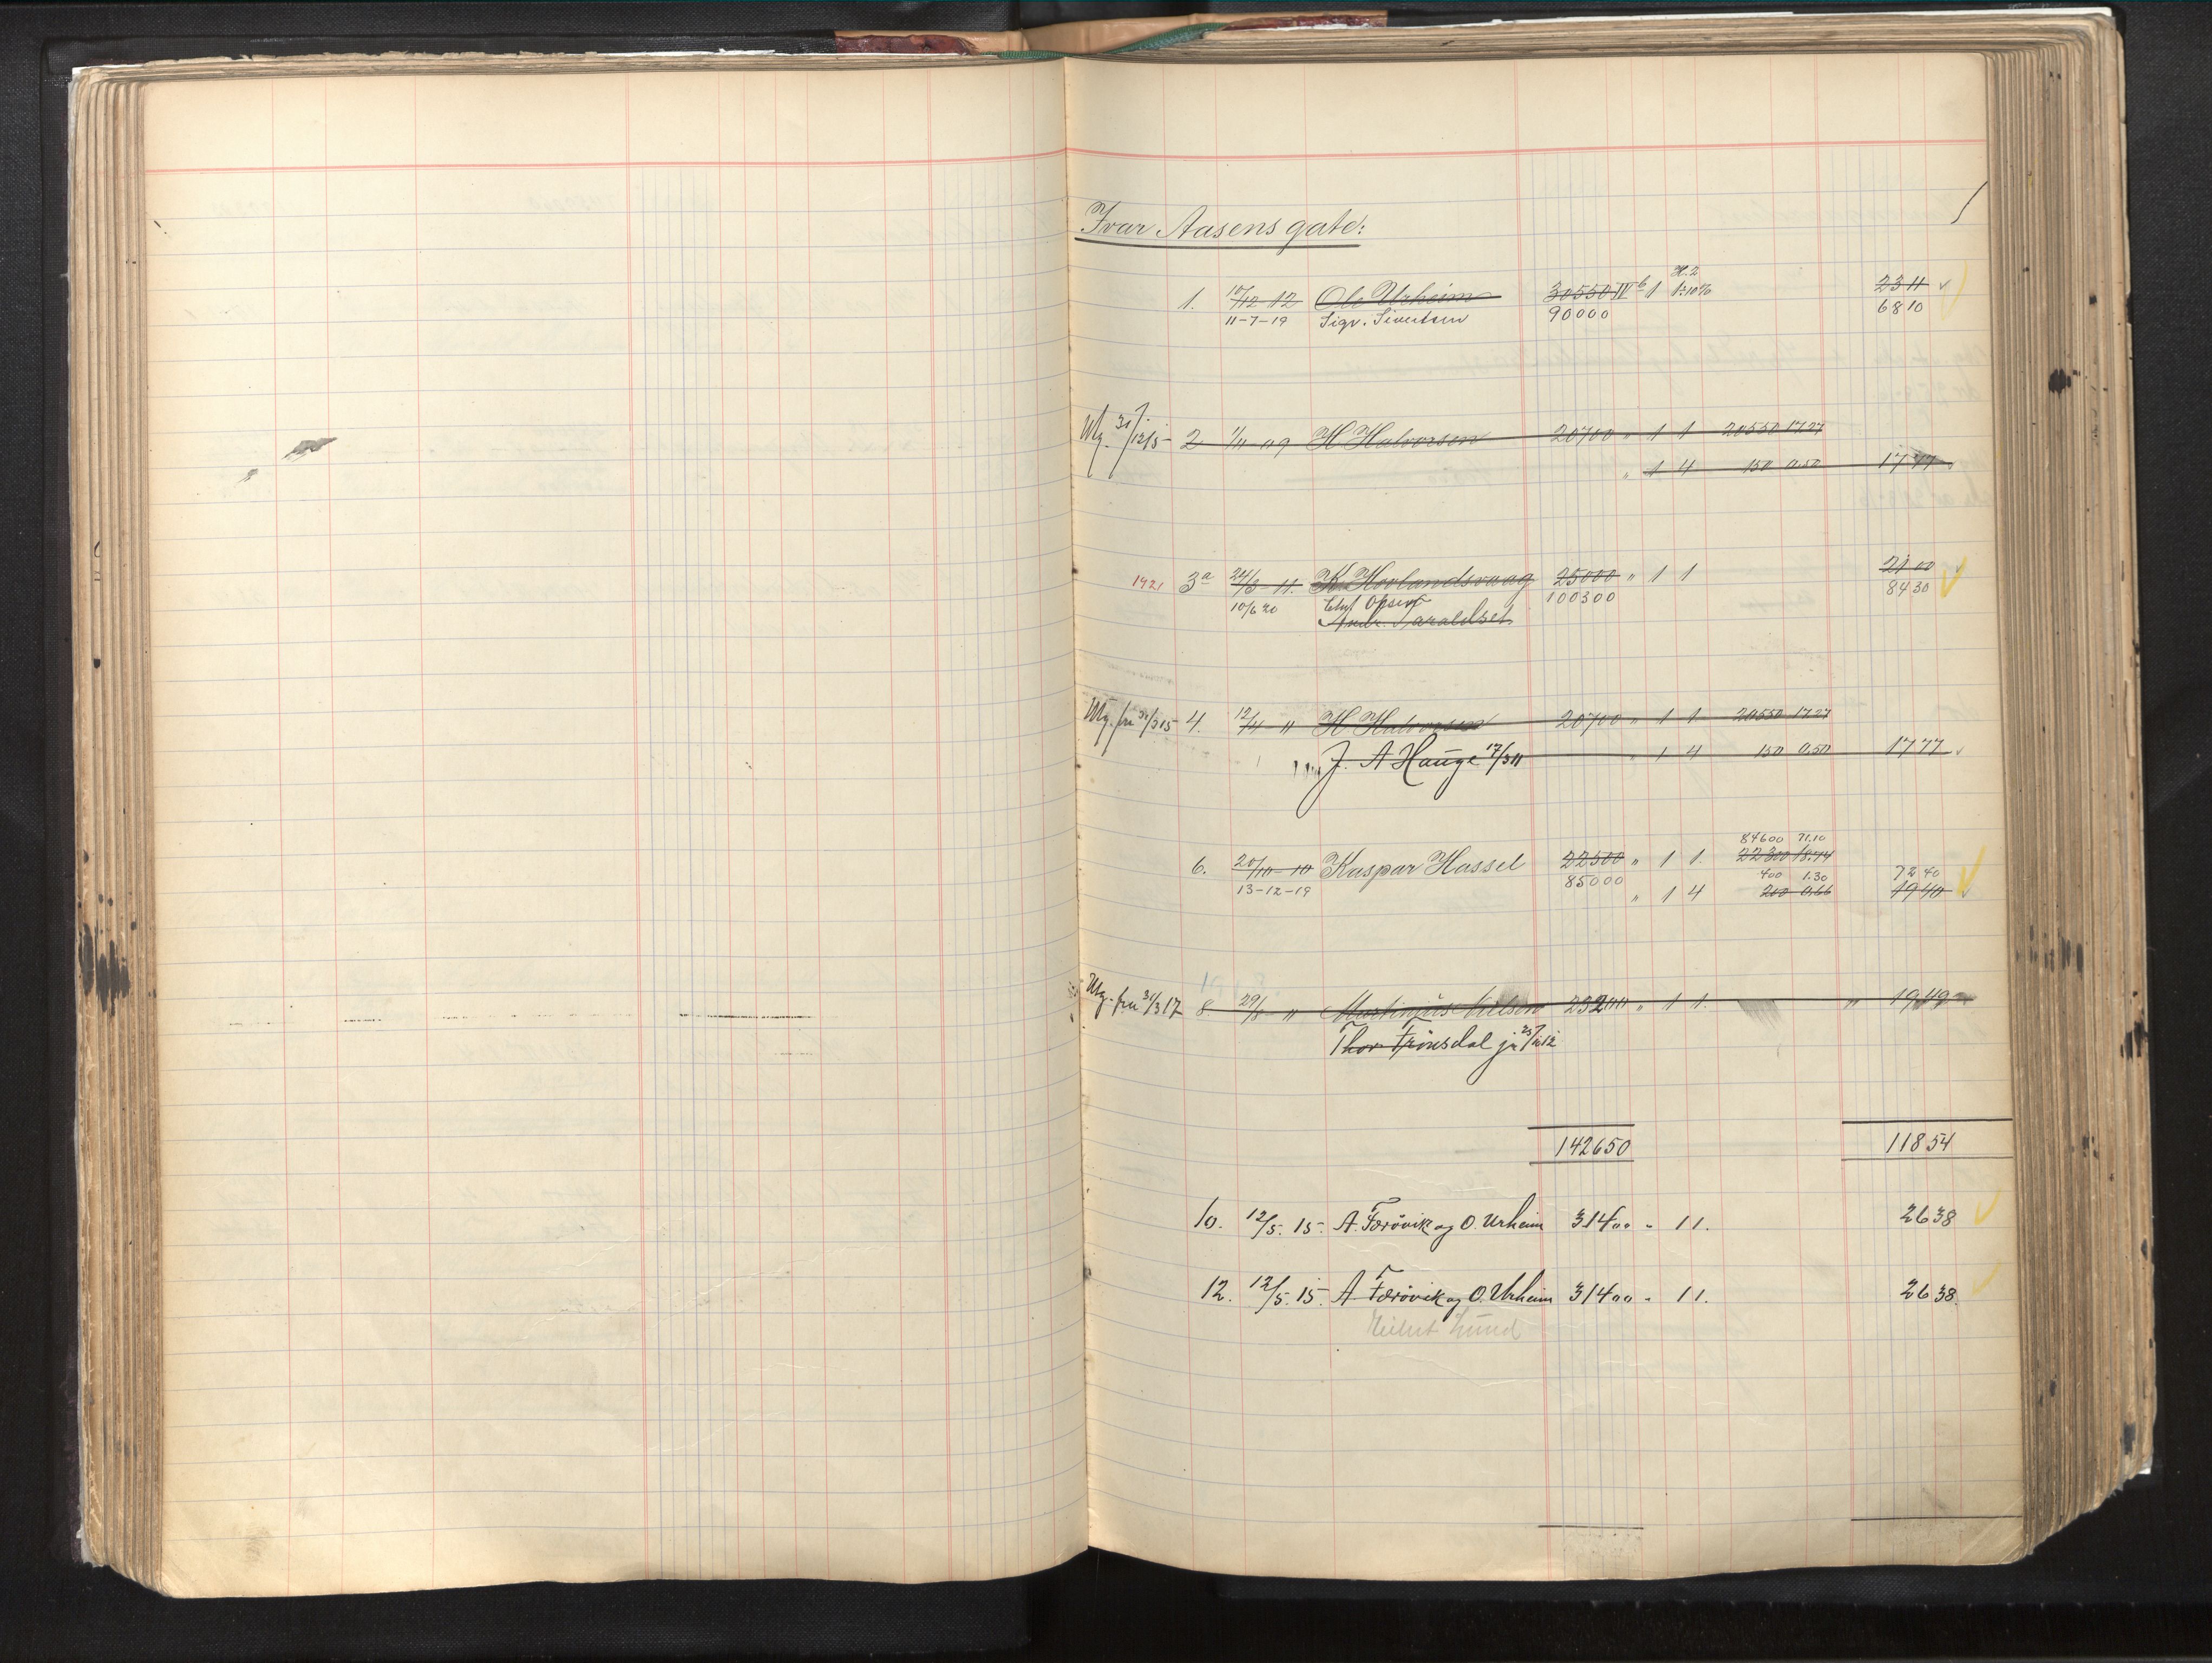 Ivar Aasens gate:
H. 2
1. 10/12-12 Ole Urheim 30550 IV b 1 1÷10% 23 11
11-7-19 Sigv. Sivertsen 90000 68 10
Utg. 31/12 15 2 1/11-09 H Halvorsen 20700 " 1 1 20550 17.27
" 1 4 150 0.50 17 77
1421 3a 24/3-11. K. Hovlandsvaag 25000 " 1 1 21 00
10/6 20 Opsen 100300 84 30
Andr. Taraldset
Utg. fra 31/3 15 4. 12/4 - " H Halvorsen 20700 " 1 1 20550 17.27
J. A Hauge 17/3 11 " 1 4 150 0.50 17 77
84600 71.10
6. 20/10-10 Kaspar Hassel 22500 " 1 1. 22300 18.74
13-12-19 85000 400 1.30 72 40
" 1 4 200 0.66 19 40
Utg. fra 31/3 17 8. 29/8 - " Martinius Nilsen 23200 " 1 1. " 19 49
Thor Frønsdal 12
142650 118 54
10. 12/5. 15. A. Førøvik og O. Urheim 31400 " 1 1. 26 38
12. 12/5. 15. A Førøvik og O. Urheim 31400 " 1 1. 26 38.
Lund